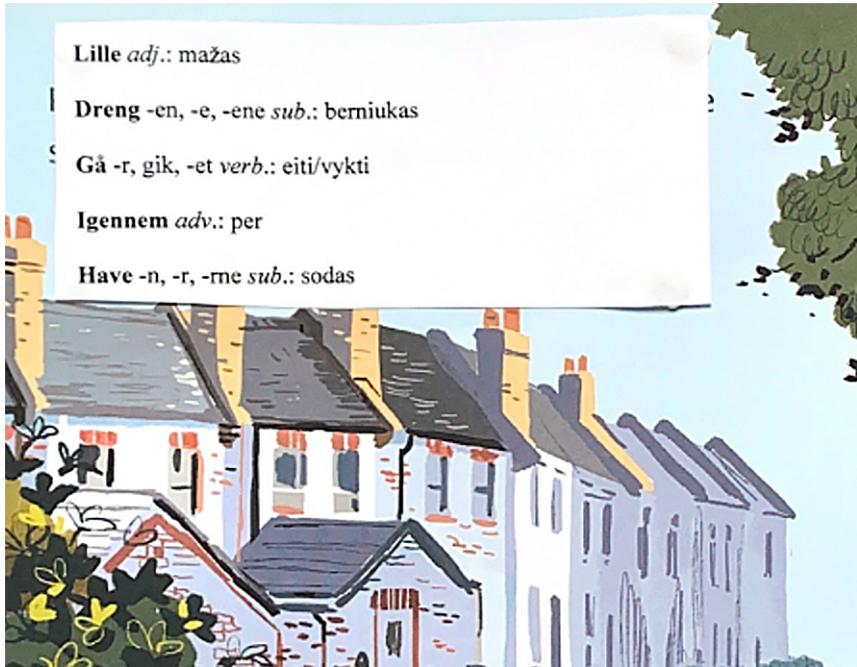 Lille adj.: mažas
Dreng -en, -e, -ene sub.: berniukas
Gå -r, gik, -et verb.: eiti/vykti
Igennem adv.: per
Have -n, -r, -rne sub.: sodas